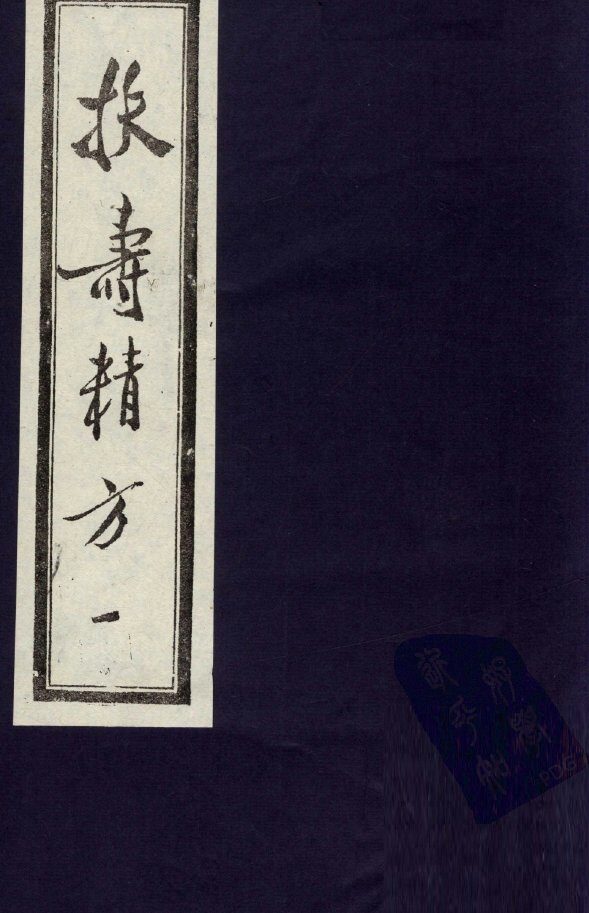 扶壽精方一
PDG